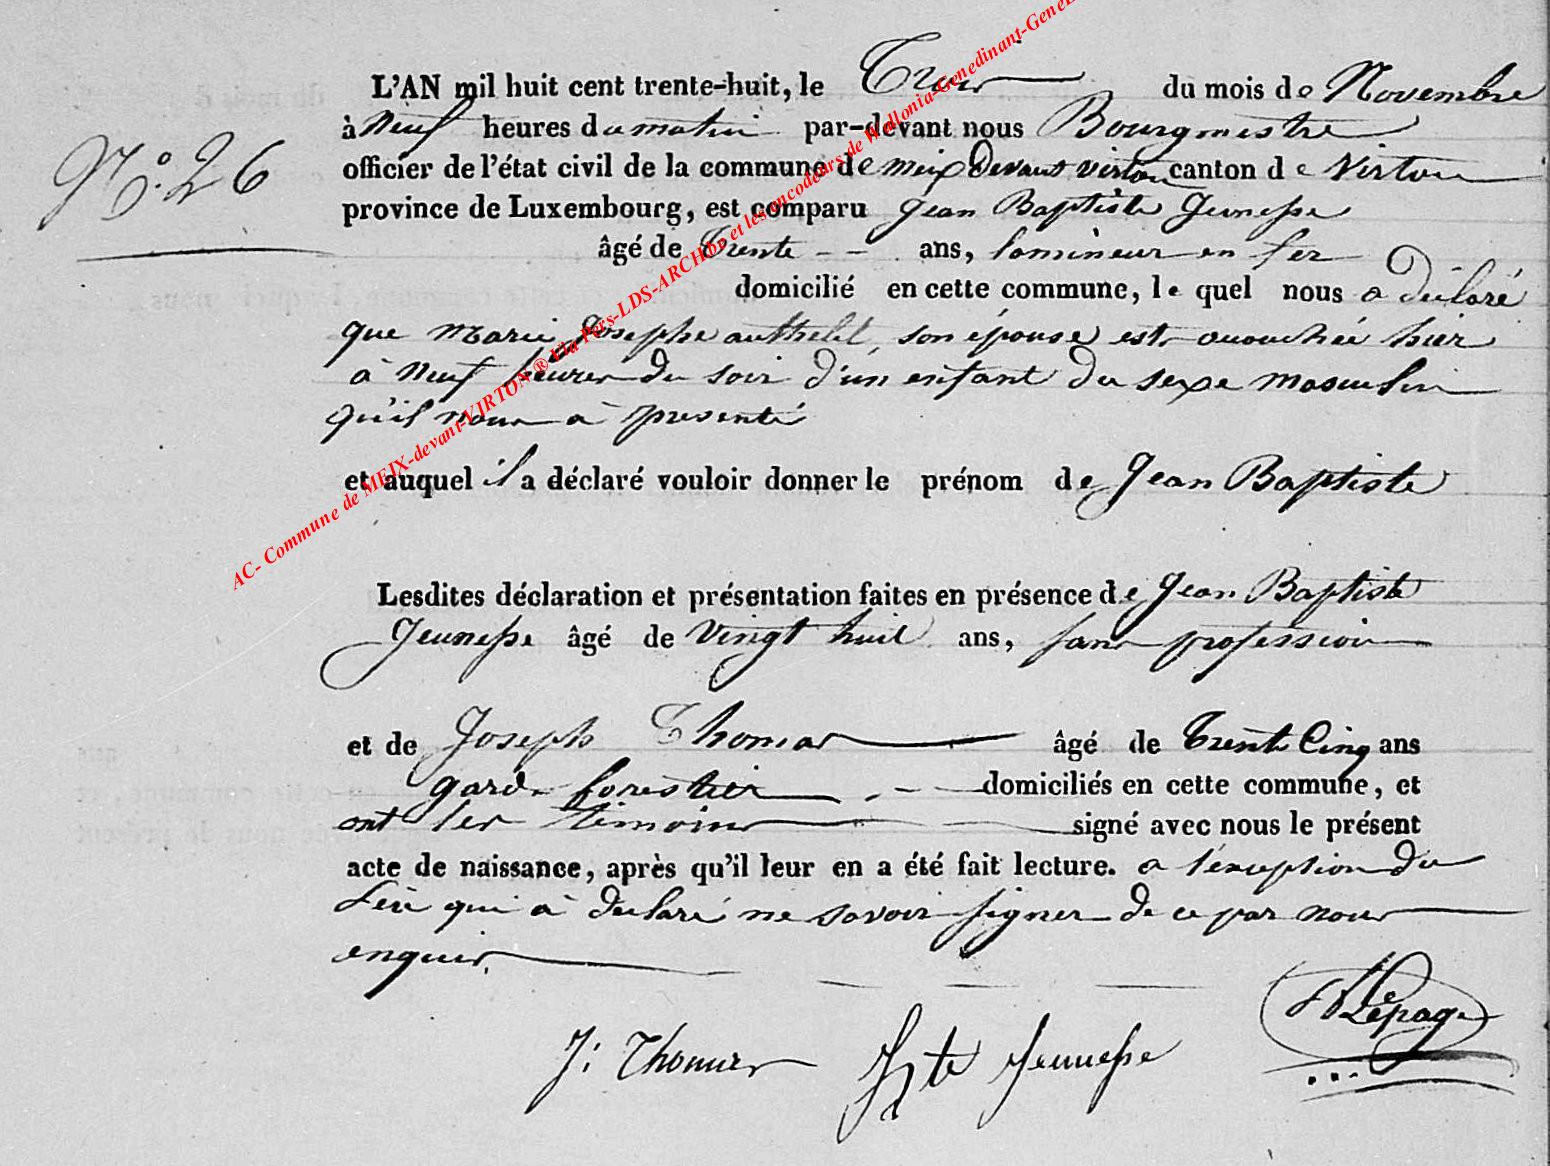 N.º 26
L'AN mil huit cent trente-huit, le Trois du mois de Novembre
à Neuf heures du matin par-devant nous Bourgmestre
officier de l'état civil de la commune de meix devant virton canton de Virton
province de Luxembourg, est comparu Jean Baptiste Jeunesse
âgé de Trente ans, lamineur en fer
domicilié en cette commune, le quel nous a déclaré
que Marie Josephe authelet, son épouse est accouchée hier
à Neuf heures du soir d'un enfant du sexe masculin
qu'il nous à presenté
et auquel il a déclaré vouloir donner le prénom de Jean Baptiste
Lesdites déclaration et présentation faites en présence de Jean Baptiste
Jeunesse âgé de Vingt huit ans, sans profession
et de Joseph Thomas âgé de Trente Cinq ans
garde forestier domiciliés en cette commune, et
ont les témoins signé avec nous le présent
acte de naissance, après qu'il leur en a été fait lecture. a l'exception du
Père qui à declaré ne savoir signer de ce par nous
enquis.
J: Thomas Jbte Jeunesse Lepage
AC- Commune de MEIX-devant-VIRTON® Via Pers-LDS-ARCHbe et les encodeurs de Wallonia-Genedinant-GeneB